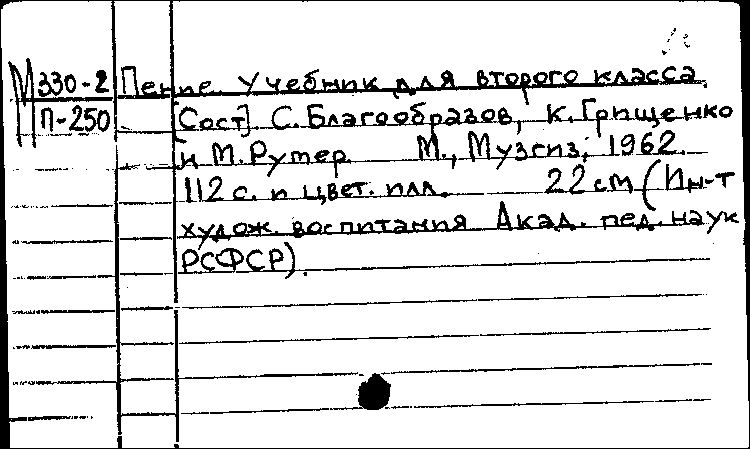 М330-2 Пение. Учебник для второго класса.
П-250 [Сост] С. Благообразов, К. Грищенко
и М. Рутер. М., Музгиз, 1962.
112 с. и цвет. илл. 22 см (Ин-т
худож. воспитания Акад. пед. наук
РСФСР).